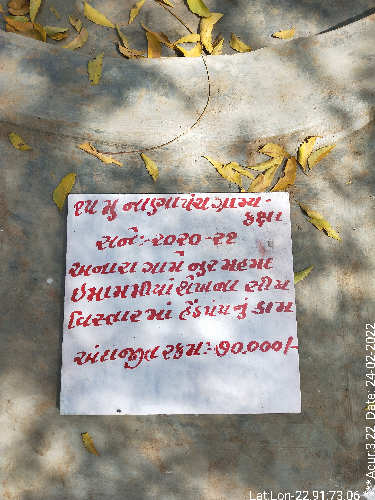 ૧૫ મુ નાણાપંચ ગ્રામ્ય-
કક્ષા
સને:-૨૦૨૦-૨૧
અનારા ગામે નુર મહમદ
ઇમામમીયાં શેખના સીમ
વિસ્તારમાં હેંડપંપનું કામ
અંદાજીત રકમ:-૭૦.૦૦૦/-
Lat:Lon-22.91:73.06
***Acur:3.22 Date: 24-02-2022